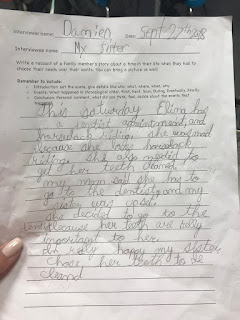 Interviewer name: Damien Date: Sept 27th 2018
Interviewees name: My Sister
Write a recount of a family member's story about a time in their life when they had to
choose their needs over their wants. You can bring a picture as well!
Remember to include:
Introduction: set the scene, give details like who, what, where, what, why
Events: what happened in chronological order, First, Next, Soon, During, Eventually, Finally
Conclusion: Personal comment, what did you think, feel, decide about the events that
happened
This saturday Elion has
a dentist apointment, and
horseback riding. She was mad
Because she loves horseback
riding. She also needed to
get her teeth cleaned.
my mom said she has to
go to the dentist and my
sister was upset.
she decided to go to the
dentist because her teeth are really
important to her.
Im really happy my sister
chose her teeth to be
cleand